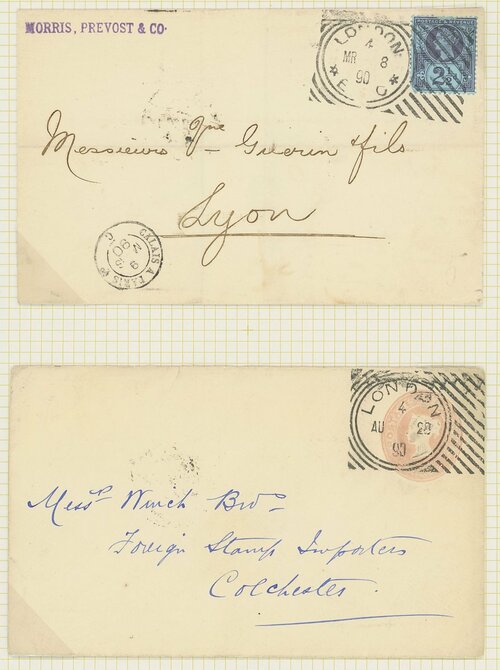 MORRIS, PREVOST & CO.
LONDON
4
MR 8
90
E.C
2½
Messieurs Vve Guerin & fils
Lyon
CALAIS A PARIS
9
90
LONDON
4
AU 20
90
Messrs Winch Bros
Foreign Stamp Importers
Colchester